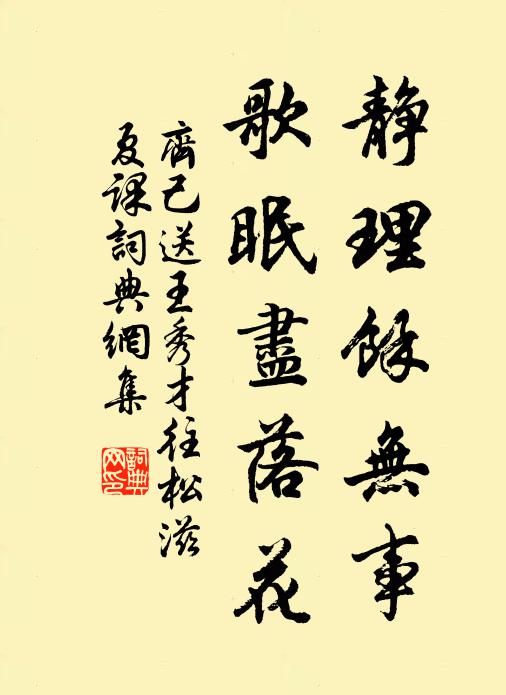 靜理餘無事
歌眠盡落花
齊己送王秀才往松滋
夏課詞典網集
詞典網印